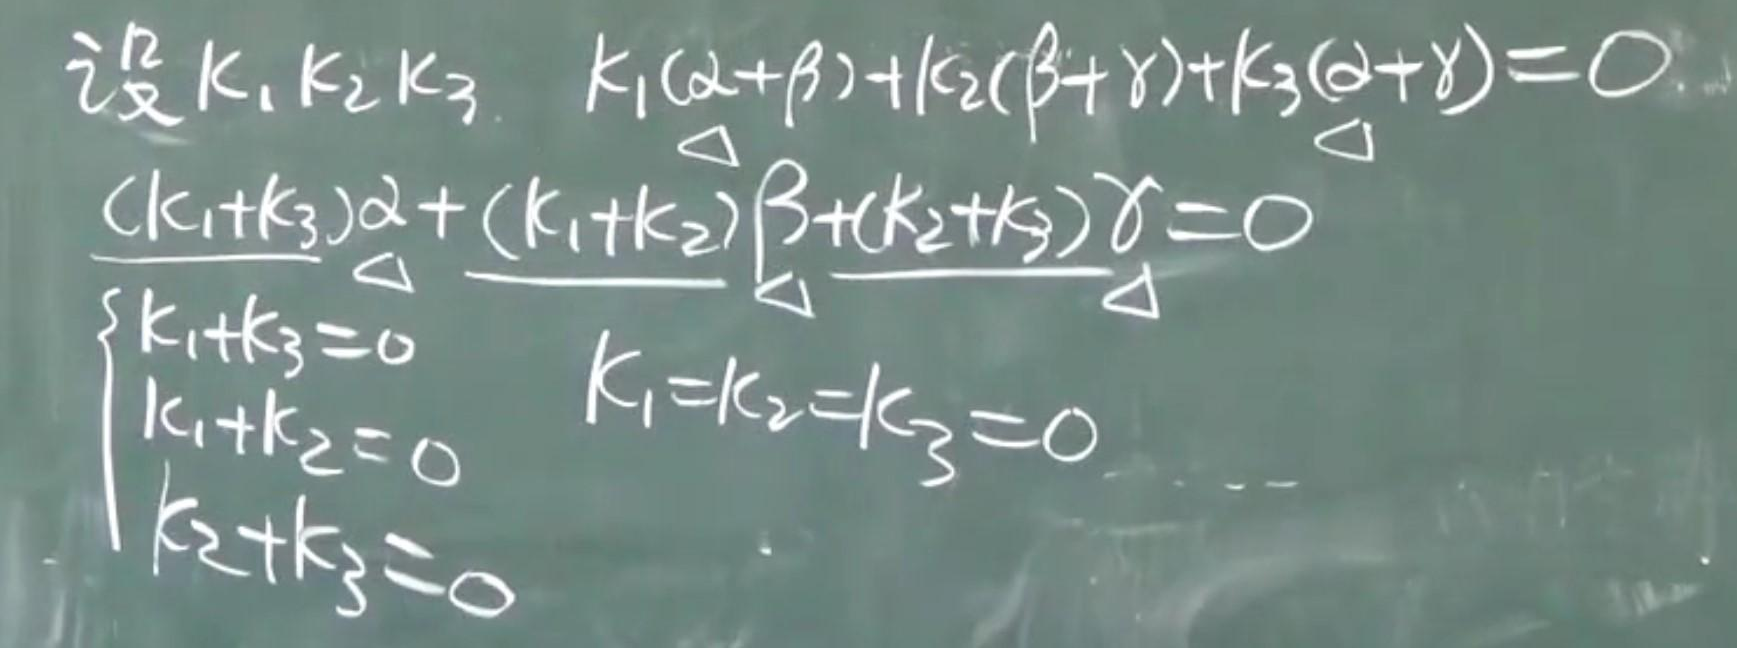 设 K₁ K₂ K₃. K₁(α+β)+K₂(β+γ)+K₃(α+γ)=0
(K₁+K₃)α+(K₁+K₂)β+(K₂+K₃)γ=0
K₁+K₃=0
K₁+K₂=0
K₂+K₃=0
K₁=K₂=K₃=0